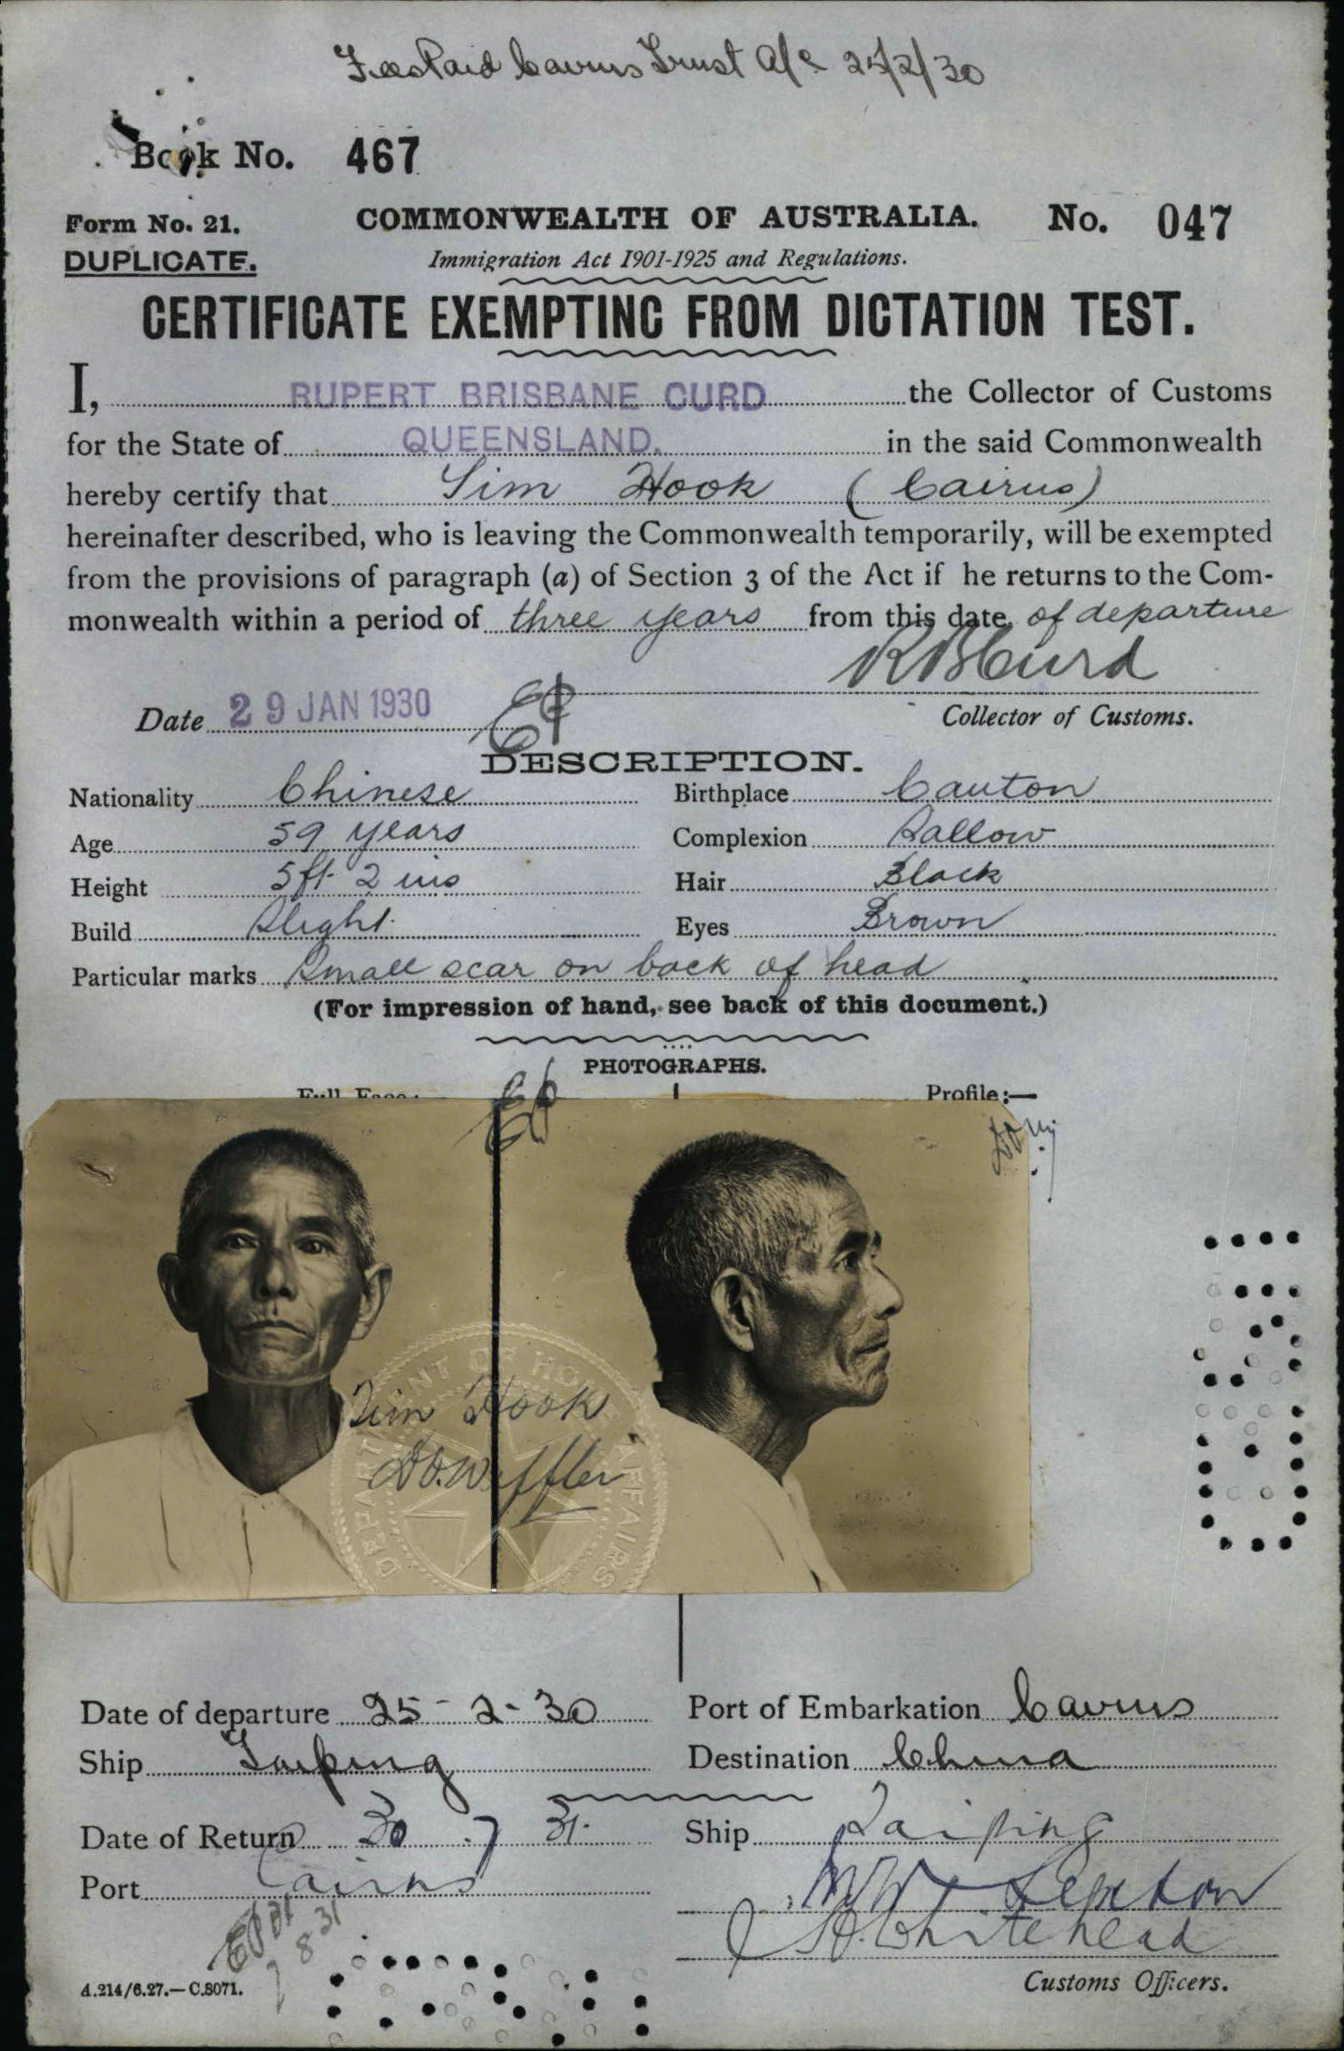 Fees Paid Cairns Trust a/c 25/2/30
Book No. 467
Form No. 21. COMMONWEALTH OF AUSTRALIA. No. 047
DUPLICATE. Immigration Act 1901-1925 and Regulations.
CERTIFICATE EXEMPTING FROM DICTATION TEST.
I, RUPERT BRISBANE CURD the Collector of Customs
for the State of QUEENSLAND. in the said Commonwealth
hereby certify that Sim Hook (Cairns)
hereinafter described, who is leaving the Commonwealth temporarily, will be exempted
from the provisions of paragraph (a) of Section 3 of the Act if he returns to the Com-
monwealth within a period of three years from this date of departure
R B Curd
Date 29 JAN 1930 Collector of Customs.
DESCRIPTION.
Nationality Chinese Birthplace Canton
Age 59 years Complexion Sallow
Height 5ft 2 ins Hair Black
Build Slight Eyes Brown
Particular marks Small scar on back of head
(For impression of hand, see back of this document.)
PHOTOGRAPHS.
Full Face: Profile:—
DEPARTMENT OF HOME AFFAIRS
Hook
Date of departure 25-2-30 Port of Embarkation Cairns
Ship Taiping Destination China
Date of Return 30.7.31. Ship Taiping
Port Cairns
Whitehead
7 8 31
A.214/6.27.—C.8071. Customs Officers.